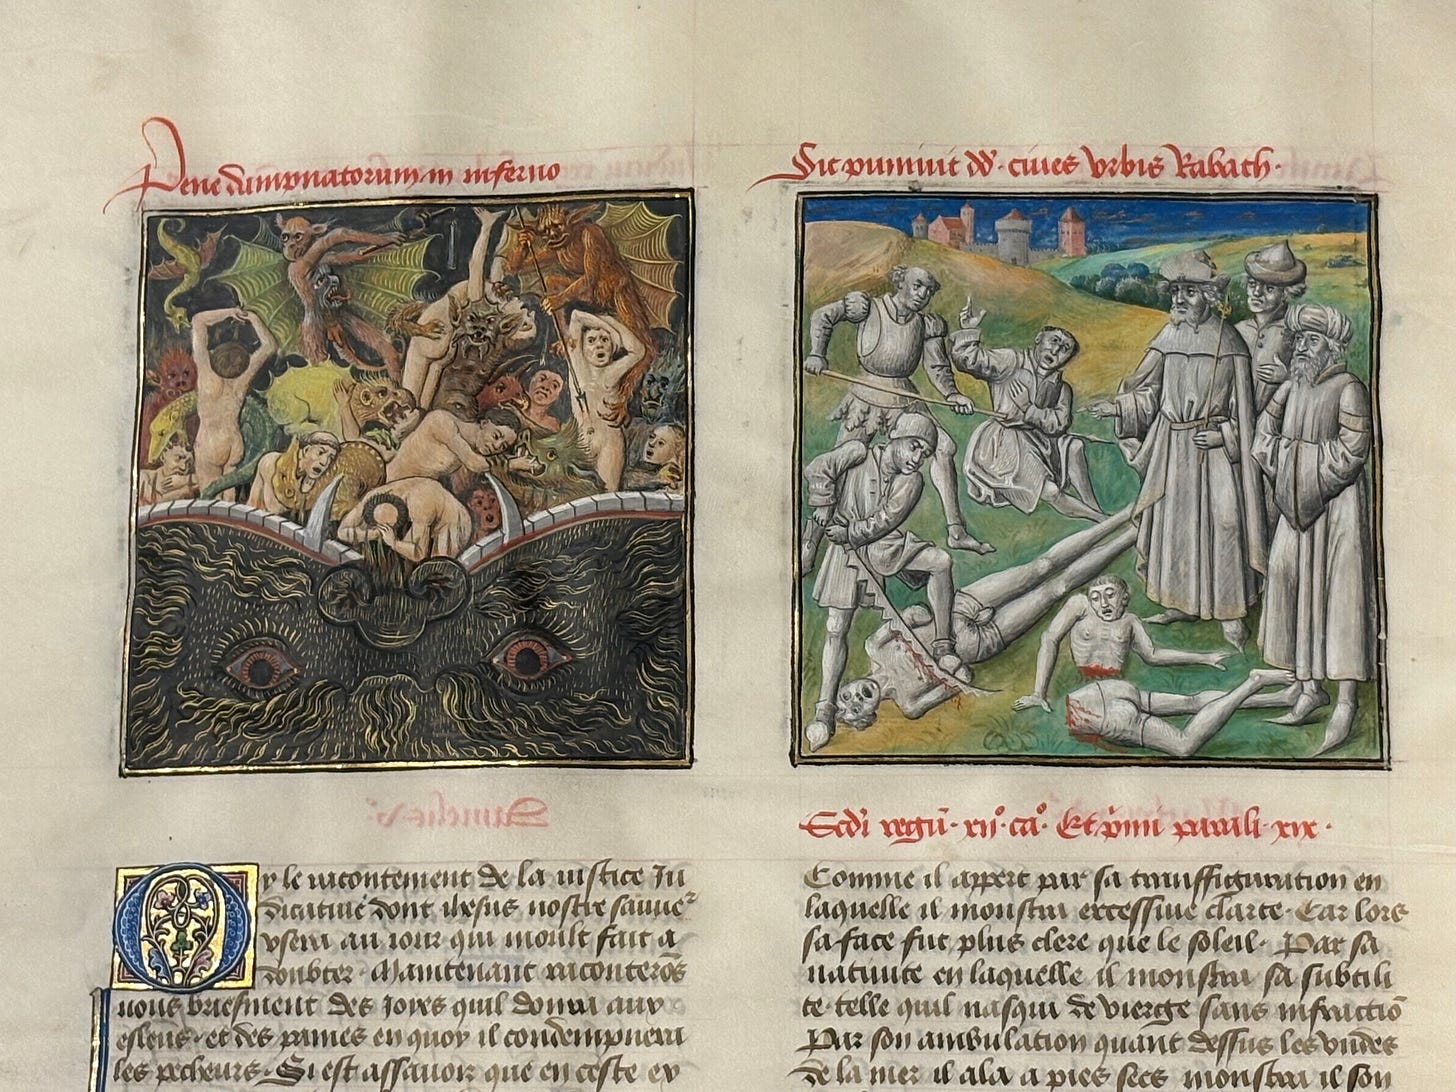 Pene dampnatorum in inferno
Sic puniuit dd. ciues vrbis Rabach.
Scdi regū. xii.o ca.o Et p̄mi parali. xix.
Oy le racontement de la iustice Iu
diciaire dont ihesus nostre sauue
vsera au iour qui moult fait a
doubter. Maintenant raconterōs
nous briefment des Ioyes quil donra aux
esleus. et des paines en quoy il condempnera
les pecheurs. Si est assauoir que en ceste ex
Comme il appert par sa transfiguration en
laquelle il monstra excessiue clarte. Car lors
sa face fut plus clere que le soleil. Par sa
natiuite en laquelle il monstra sa subtili
te. telle quil nasqui de vierge sans infractiō
Par son ambulation quant dessus les vndes
de la mer il ala a pies secs monstra il son